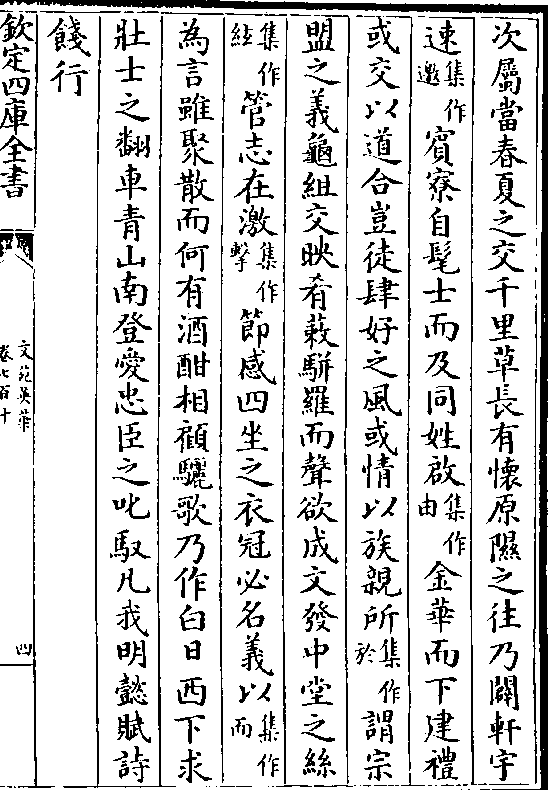 次屬當春夏之交千里草長有懷原隰之往乃闢軒宇
速集作邀賓寮自髦士而及同姓啟集作由金華而下建禮
或交以道合豈徒肆好之風或情以族親所集作於謂宗
盟之義龜組交映肴蔌駢羅而聲欲成文發中堂之絲
集作絃管志在激集作擊節感四坐之衣冠必名義以集作而
為言雖聚散而何有酒酣相顧驪歌乃作白日西下求
壯士之翻車青山南登愛忠臣之叱馭凡我明懿賦詩
餞行
欽定四庫全書
文苑英華
卷七百十
四